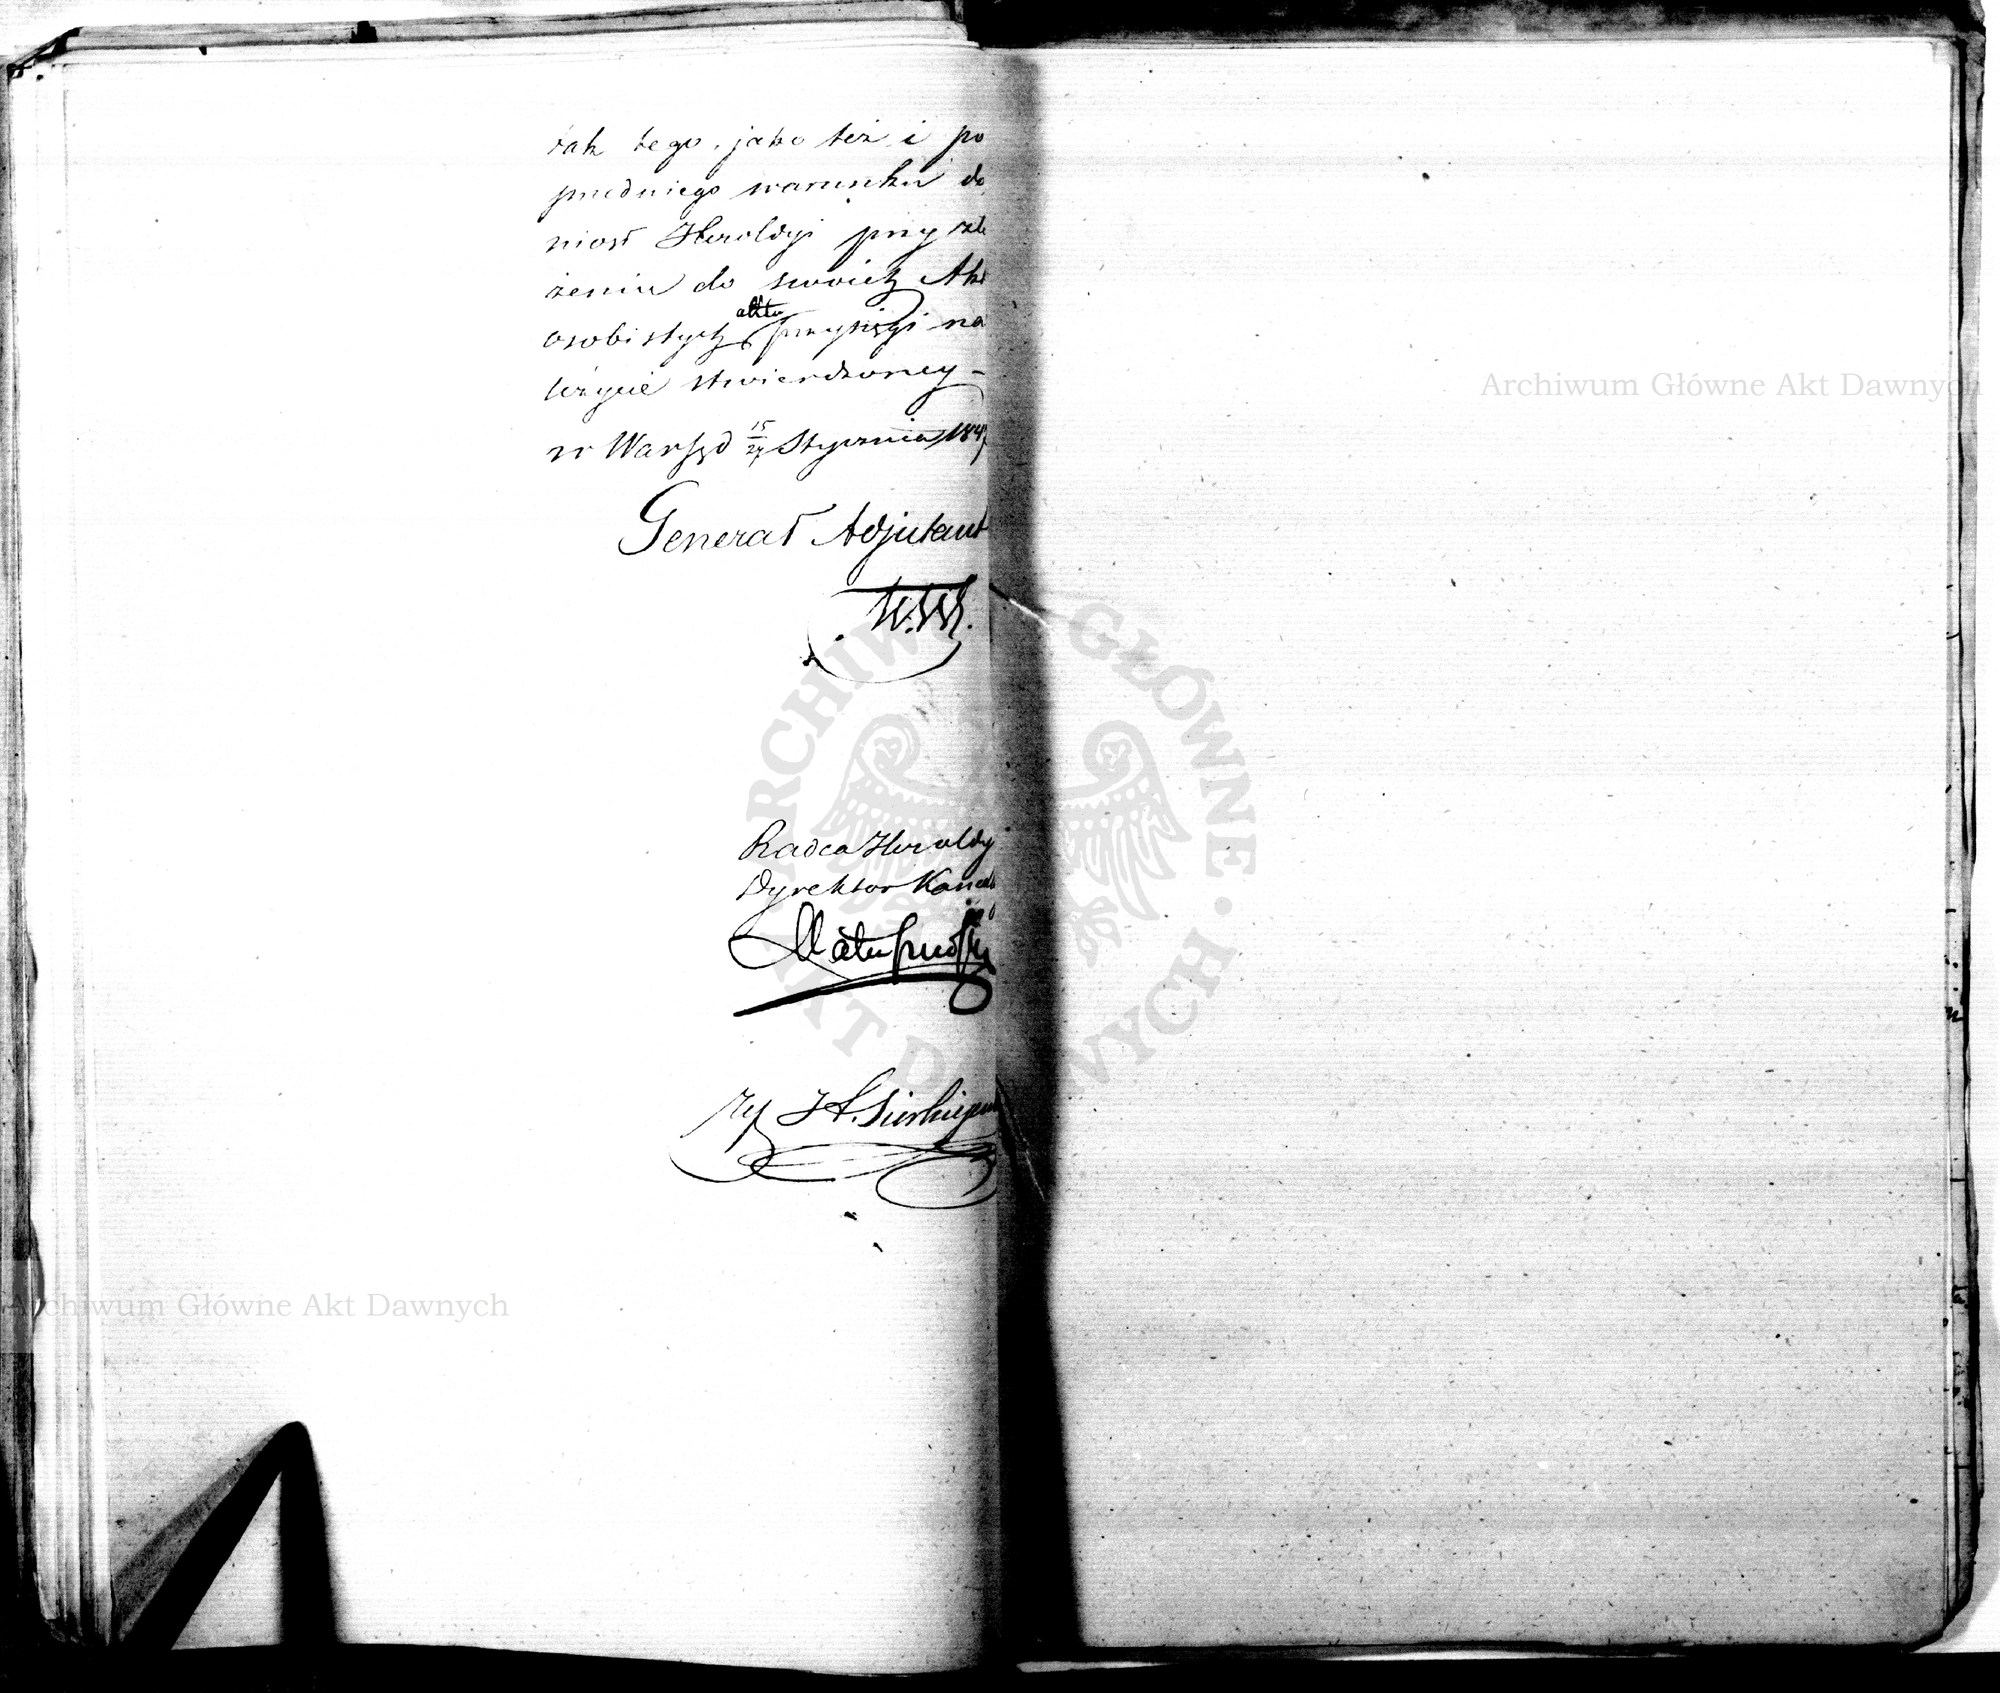 tak tego, jako też i po
przedniego warunku do
niosł Heroldyi przy zło
żeniu do swoich Akt
osobistych aktu przysięgi na
tożycie stwierdzoney –
w Warsz d 15/27 Stycznia 184
Generał Adjutant
W.W.
Radca Heroldy
Dyrektor Kance
Matuszewski
Archiwum Główne Akt Dawnych
Archiwum Główne Akt Dawnych
ARCHIWUM GŁÓWNE AKT DAWNYCH